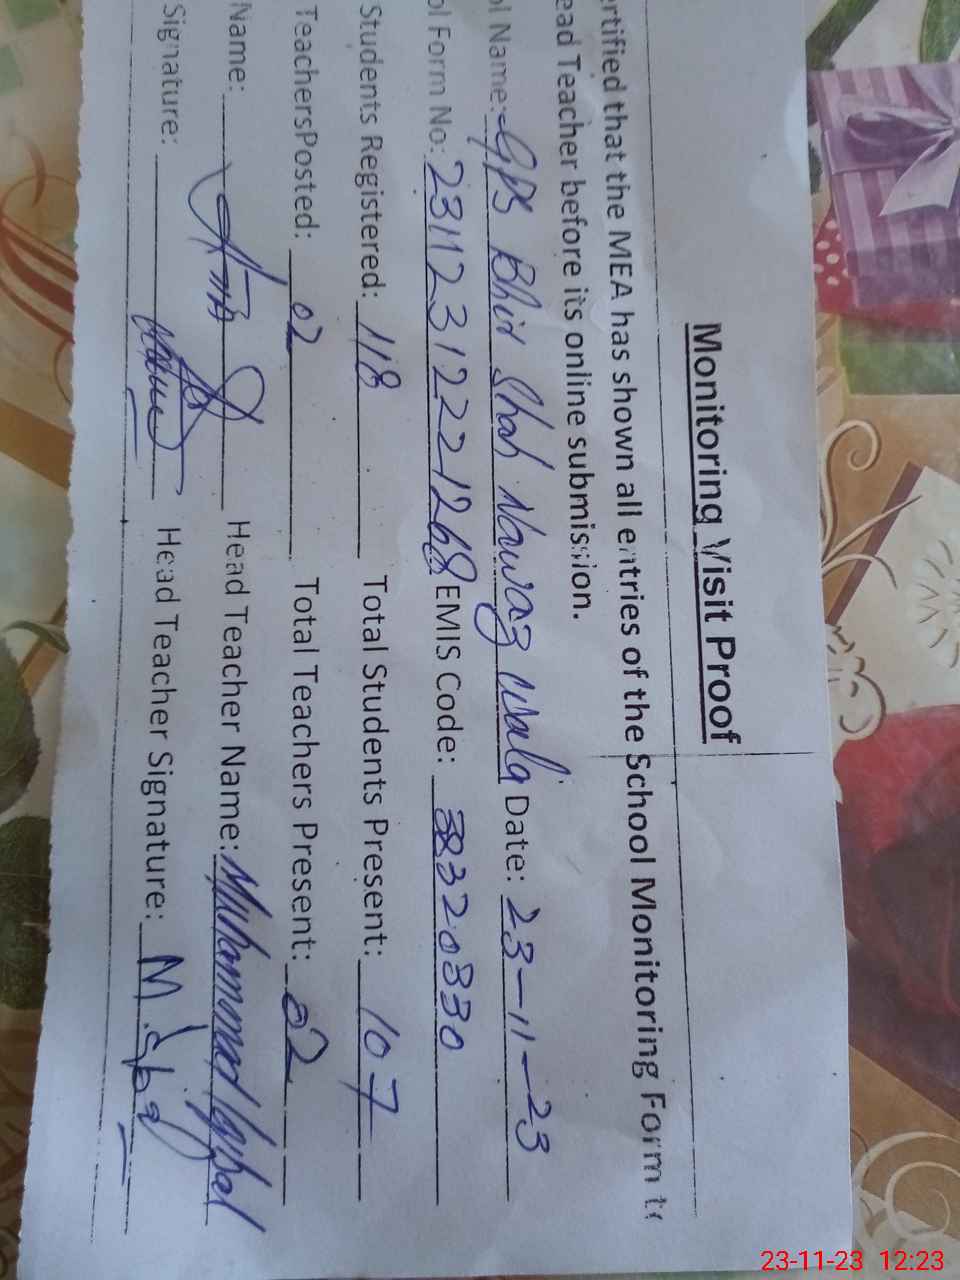 Monitoring Visit Proof
ertified that the MEA has shown all entries of the School Monitoring Form to
ead Teacher before its online submission.
ol Name: GPS Bhit Shah Nawaz wala Date: 23-11-23
ol Form No: 23112312221268 EMIS Code: 38320330
Students Registered: 118 Total Students Present: 107
TeachersPosted: 02 Total Teachers Present: 02
Name: Head Teacher Name: Muhammad Iqbal
Signature: Head Teacher Signature: M.
23-11-23 12:23